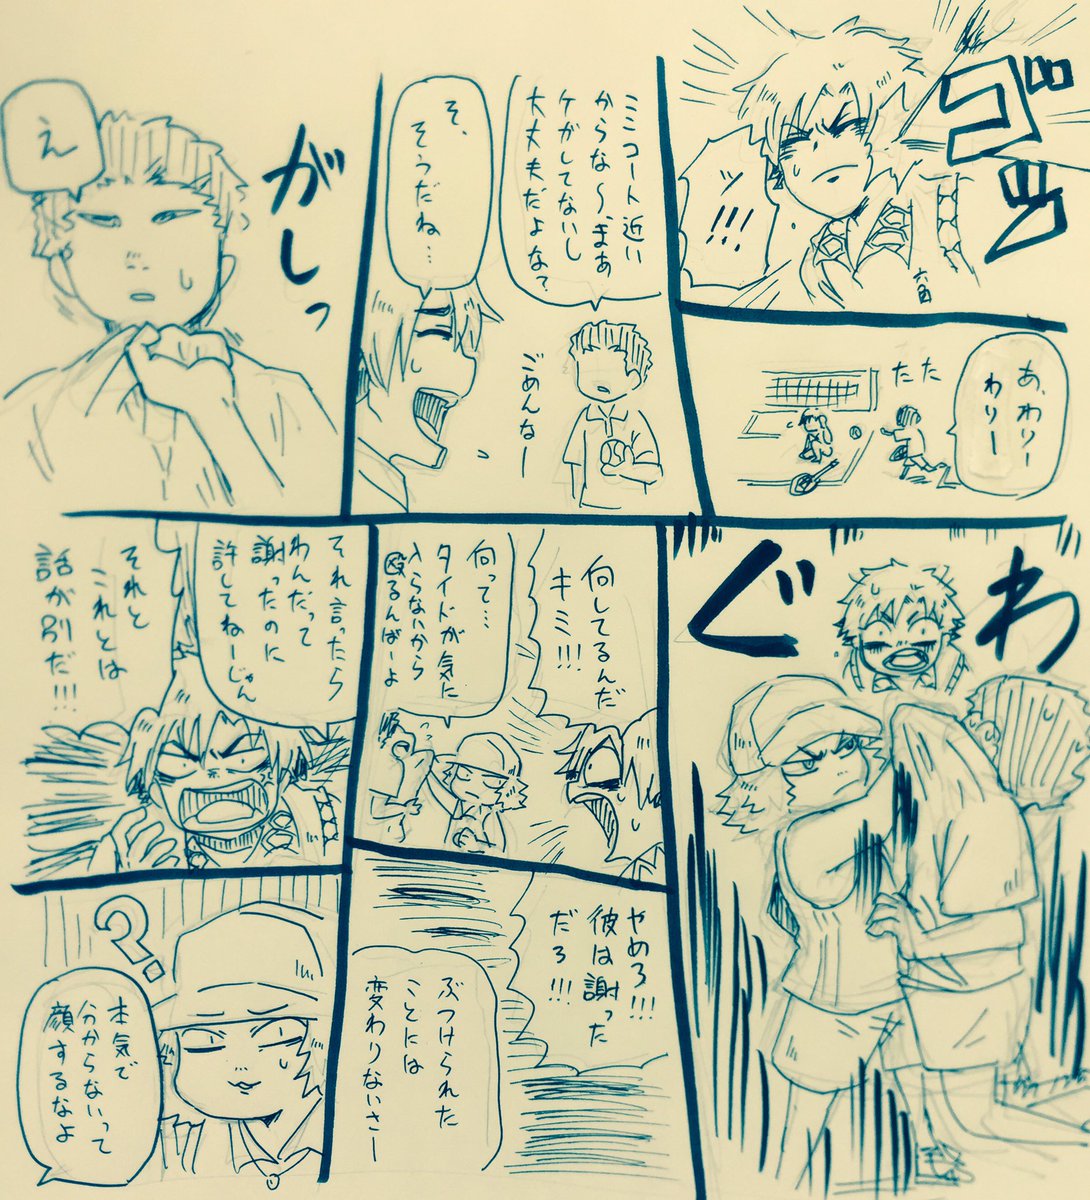 ゴッ
ッ!!!
六角
あ、わりー
わりー
たた
ミニコート近い
からな〜、まぁ
ケガしてないし
大丈夫だよな?
ごめんなー
そ、
そうだね…
がしっ
え
わ
ぐ
何してるんだ
キミ!!!
何って…
タイドが気に
入らないから
殴るんばーよ
やめろ!!!
彼は謝った
だろ!!!
ぶつけられた
ことには
変わりないさー
それ言ったら
わんだって
謝ったのに
許してねーじゃん
それと
これとは
話が別だ!!!
?
本気で
分からないって
顔するなよ